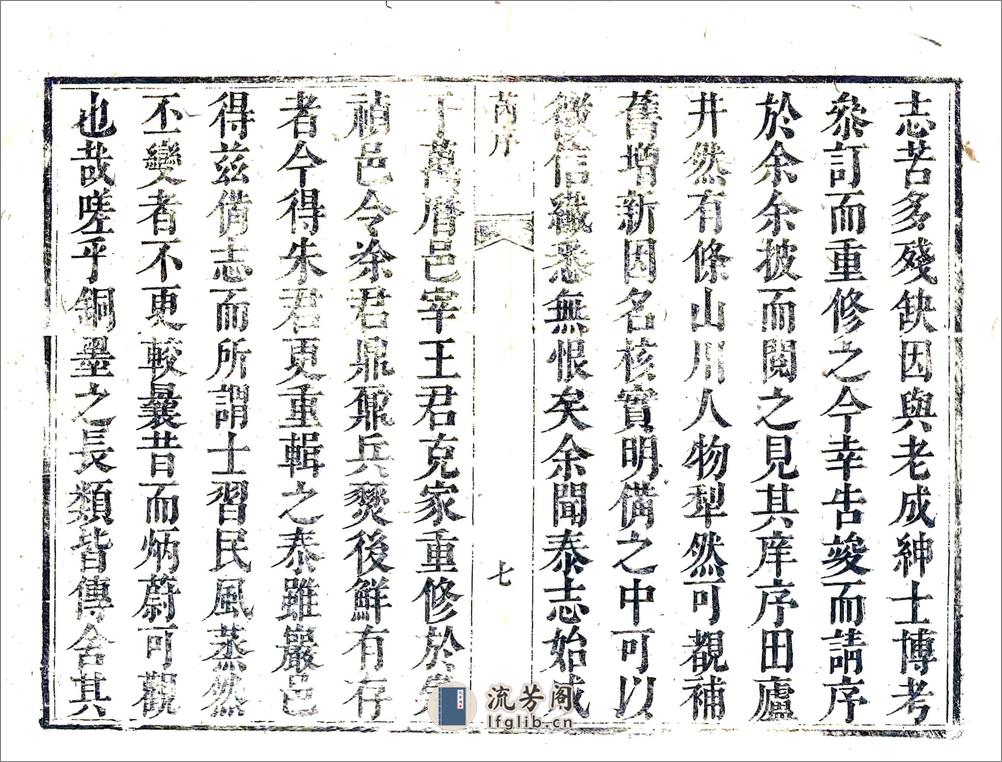 志苦多殘缺因與老成紳士博考
叅訂而重修之今幸告竣而請序
於余余披而閱之見其庠序田廬
井然有條山川人物犁然可覩補
舊增新因名核實明備之中可以
徵信纖悉無恨矣余聞泰志始成
芮序
七
于萬曆邑宰王君克家重修於
禎邑令涂君鼎鼐兵燹後鮮有存
者今得朱君更重輯之泰雖巖邑
得兹備志而所謂士習民風蒸然
丕變者不更較曩昔而炳蔚可觀
也哉嗟乎銅墨之長類皆傳舍其
流芳阁
lfglib.cn